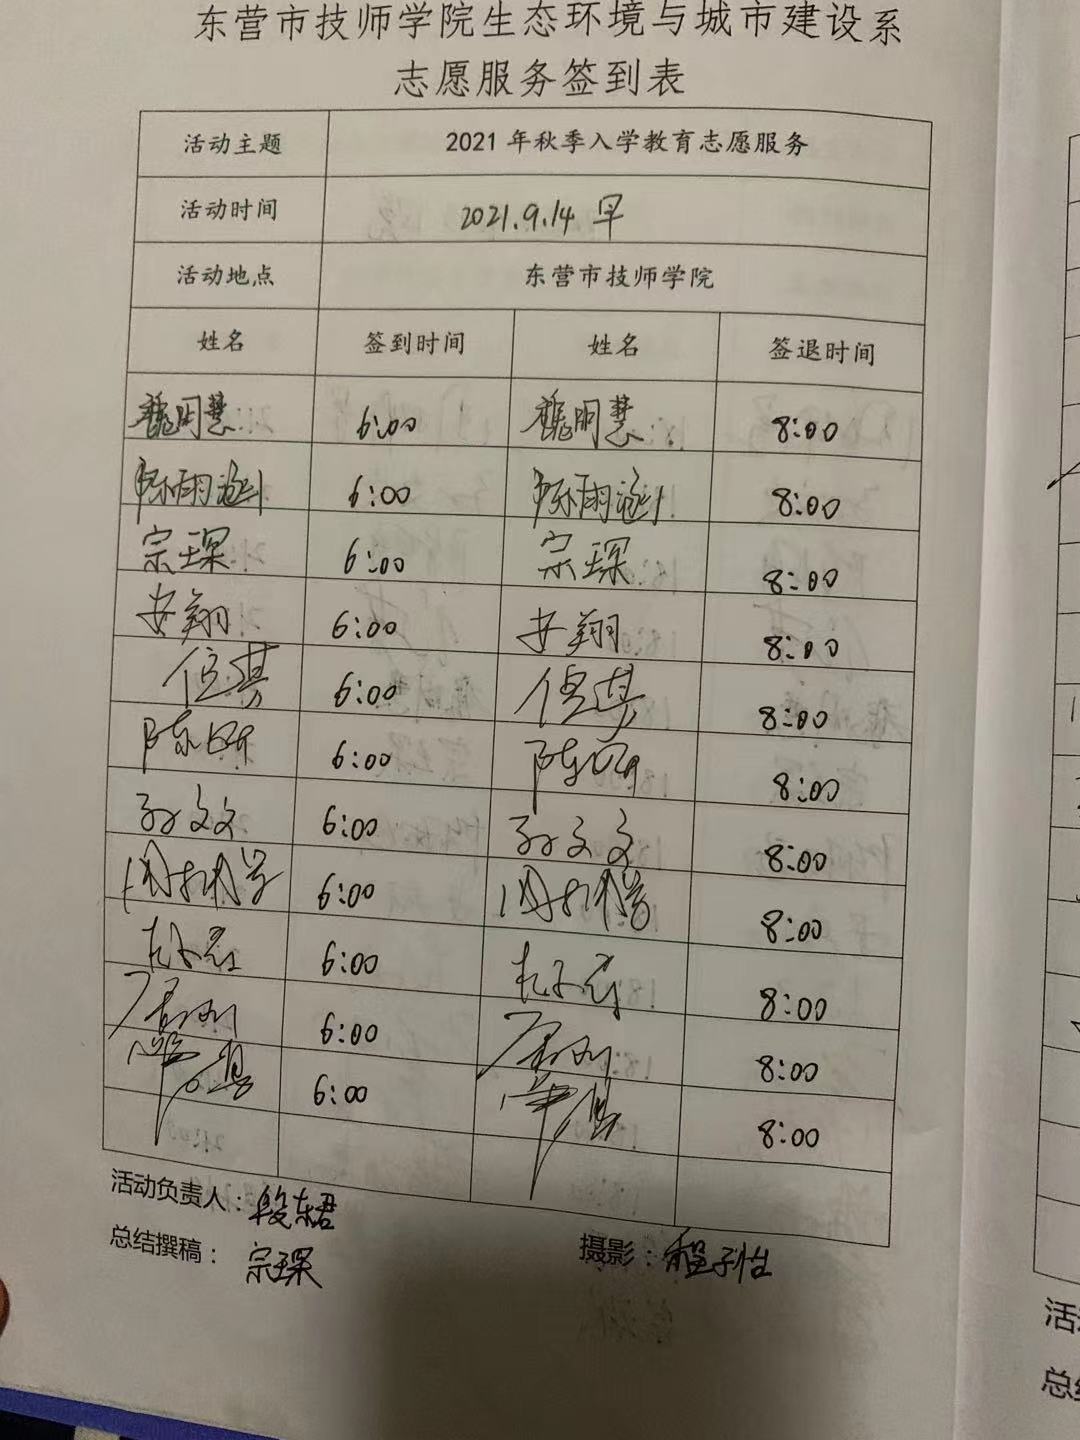 东营市技师学院生态环境与城市建设系
志愿服务签到表
活动主题 2021年秋季入学教育志愿服务
活动时间 2021.9.14 早
活动地点 东营市技师学院
姓名 签到时间 姓名 签退时间
魏明慧 6:00 魏明慧 8:00
6:00 8:00
宗琛 6:00 宗琛 8:00
安翔 6:00 安翔 8:00
6:00 8:00
6:00 8:00
孙文文 6:00 孙文文 8:00
6:00 8:00
6:00 8:00
6:00 8:00
6:00 8:00
活动负责人：段东君
总结撰稿：宗琛 摄影：程子怡